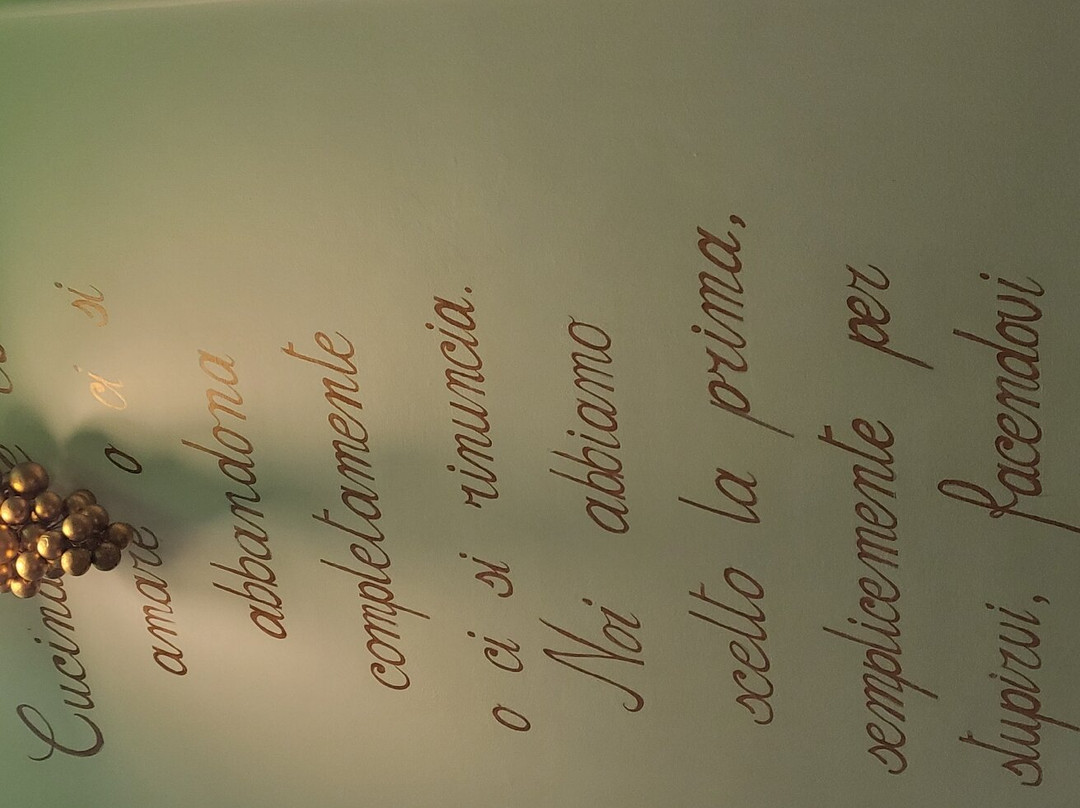 Cucina
amare o ci si
abbandona
completamente
o ci si rinuncia.
Noi abbiamo
scelto la prima,
semplicemente per
stupirvi, facendovi